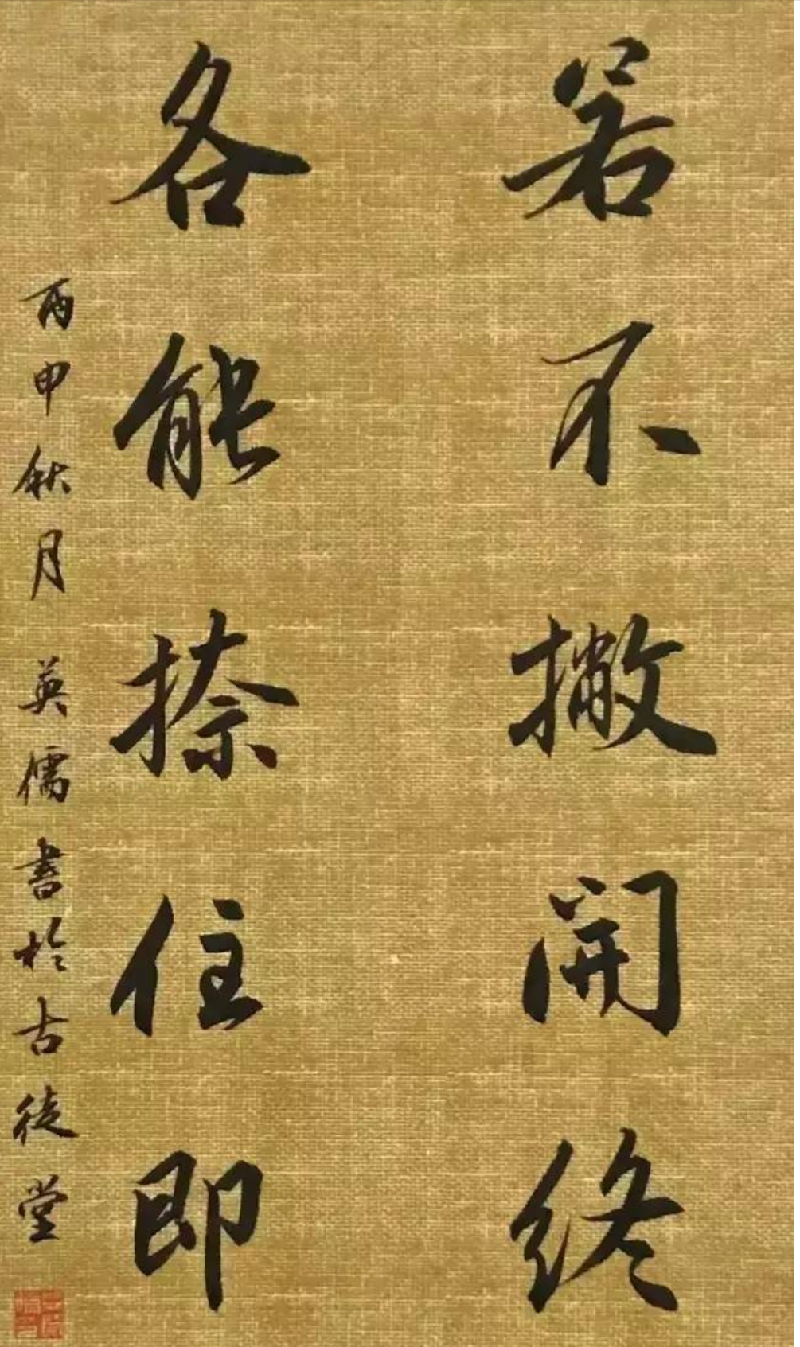 若不撇開終
各能捺住即
丙申秋月 英儒書於古徒堂